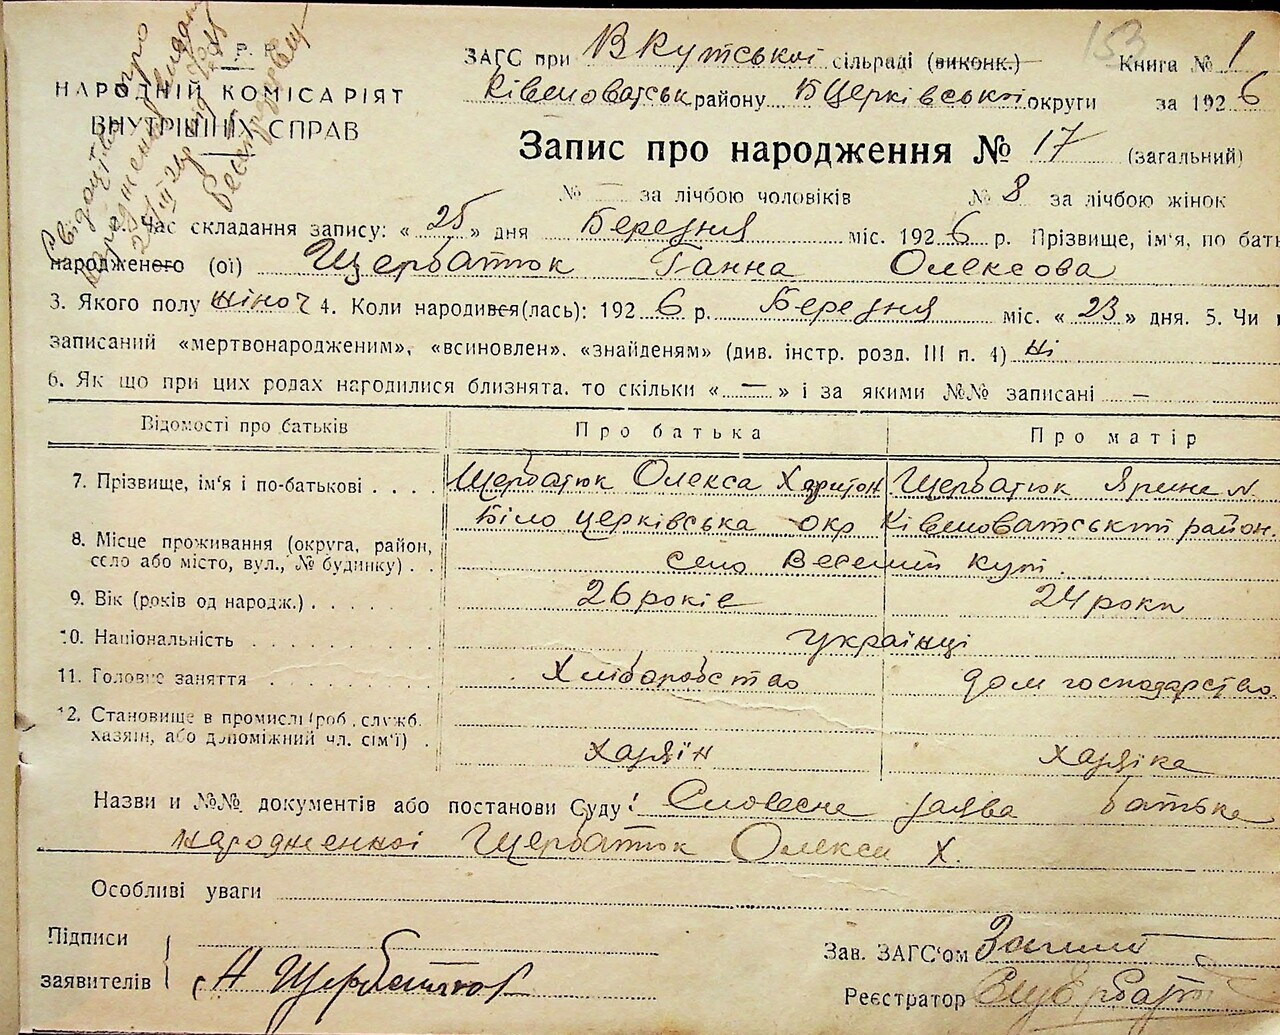 153
Р. Р.
НАРОДНІЙ КОМІСАРІЯТ
ВНУТРІШНІХ СПРАВ
Свідоцтво про
народження видано
ЗАГС при В Кутської сільраді (виконк.) Книга № 1
Ківшоватськ району БЦерківської округи за 1926
Запис про народження № 17 (загальний)
№ — за лічбою чоловіків № 8 за лічбою жінок
Час складання запису: « 25 » дня Березня міс. 1926 р. Прізвище, ім'я, по бать
народженого (ої) Щербатюк Ганна Олексова
3. Якого полу жіноч 4. Коли народився(лась): 1926 р. Березня міс. « 23 » дня. 5. Чи
записаний «мертвонародженим», «всиновлен». «знайденям» (див. інстр. розд. III п. 4) Ні
6. Як що при цих родах нагодилися близнята. то скільки « — » і за якими №№ записані —
Відомості про батьків Про батька Про матір
7. Прізвище, ім'я і по-батькові . . . . Щербатюк Олекса Харитон Щербатюк Ярина
Білоцерківська окр Ківшоватський район.
8. Місце проживання (округа, район,
село або місто, вул., № будинку) . . село Веселий Кут.
9. Вік (років од народж.) . . . . . 26 років 24 роки
10. Національність . . . . . . . . українці
11. Головне заняття . . . . . . . . Хліборобство дом господарство
12. Становище в промислі (роб., служб.
хазяїн, або допоміжний чл. сім'ї) . хазяїн хазяйка
Назви и №№ документів або постанови Суду: Словесна заява батька
народженної Щербатюк Олекси Х.
Особливі уваги
Підписи
заявителів
Щербатюк
Зав. ЗАГС'ом
Реєстратор